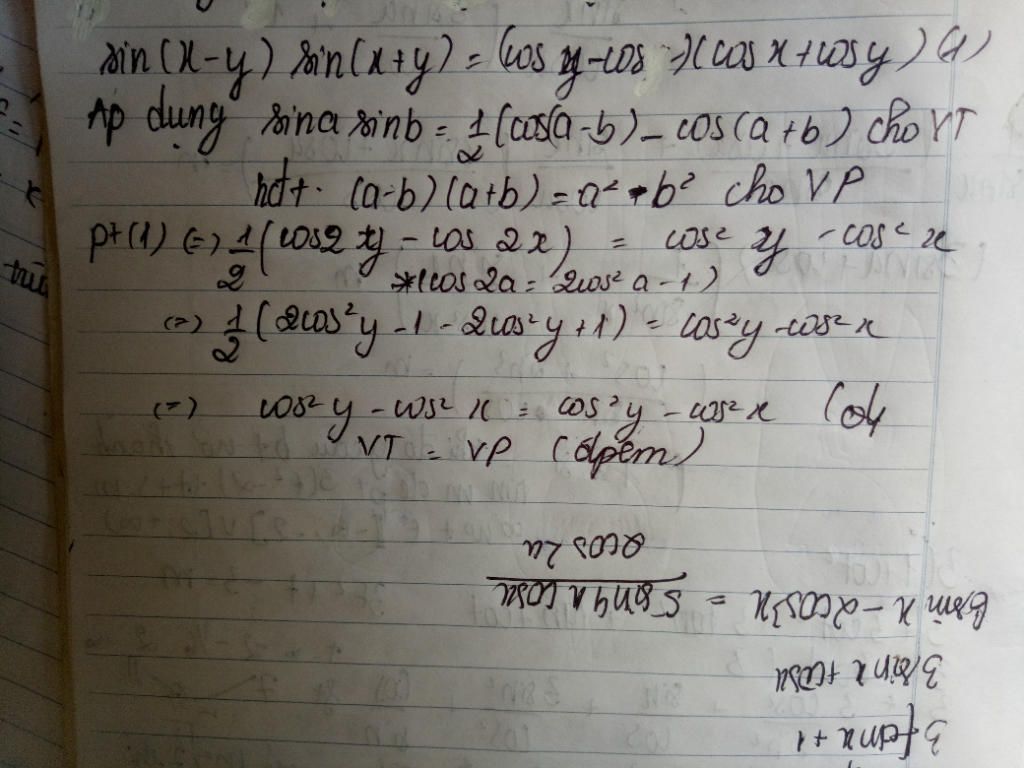 sin(x-y) sin(x+y) = (cos y-cos x)(cos x+cosy) (1)
Áp dụng sina sinb = 1/2 (cos(a-b) - cos(a+b) cho VT
hđt. (a-b)(a+b) = a² - b² cho VP
pt(1) (=) 1/2 (cos2y - cos 2x) = cos² y - cos² x
*(cos 2a = 2cos² a - 1)
(=) 1/2 (2cos²y - 1 - 2cos²y + 1) = cos²y - cos² x
(=) cos² y - cos² x = cos²y - cos²x (
VT = VP (đpcm)
3 tan x + 1
3 sin x + cosx
6sin x - 2cos³x = 5 sin4x cosx / 2cos 2x